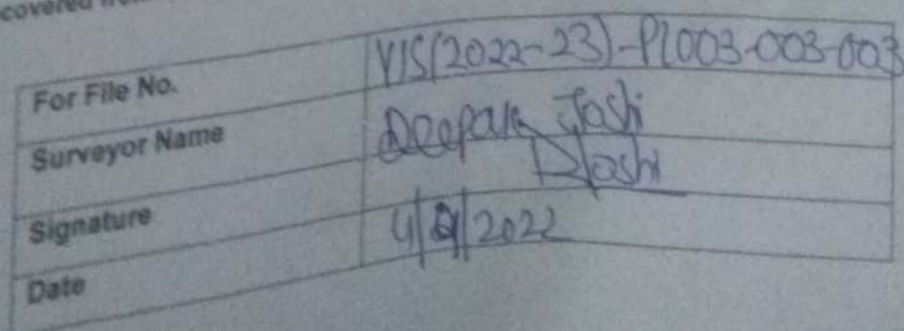 covered
For File No. VIS(2022-23)-PL003-003-003
Surveyor Name Deepak Joshi
Signature DJoshi
Date 4/ /2022